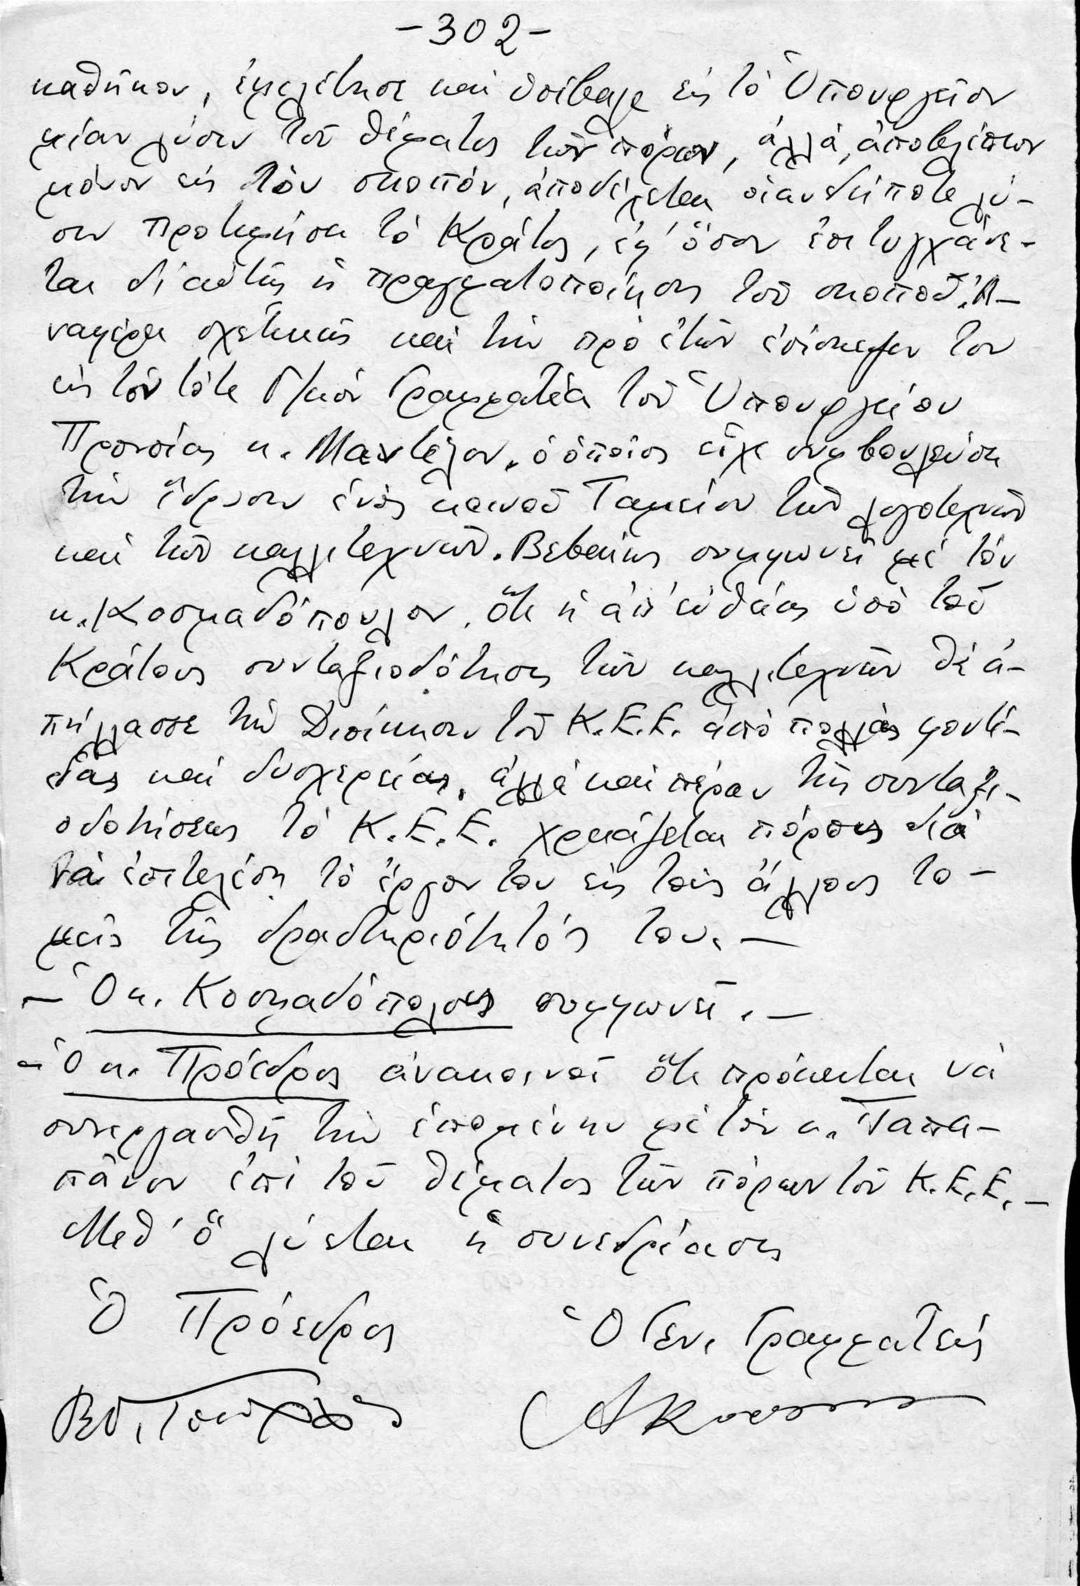 -302-
καθῆκον, ἐμελέτησε καὶ ὑπέβαλε εἰς τὸ Ὑπουργεῖον
μίαν λύσιν τοῦ θέματος τῶν πόρων, ἀλλά, ἀποβλέπων
μόνον εἰς τὸν σκοπόν, ἀποδέχεται οἱανδήποτε λύ-
σιν προτιμήσῃ τὸ Κράτος, ἐφ' ὅσον ἐπιτυγχάνε-
ται δι' αὐτῆς ἡ πραγματοποίησις τοῦ σκοποῦ. Ἀ-
ναφέρει σχετικῶς καὶ τὴν πρὸ ἐτῶν ἐπίσκεψιν του
εἰς τὸν τότε Γ/κόν Γραμματέα τοῦ Ὑπουργείου
Προνοίας κ. Μαντέλον, ὁ ὁποῖος εἶχε συμβουλεύσῃ
τὴν ἵδρυσιν ἑνὸς κοινοῦ Ταμείου τῶν λογοτεχνῶν
καὶ τῶν καλλιτεχνῶν. Βεβαίως συμφωνεῖ μὲ τὸν
κ. Κοσμαδόπουλον, ὅτι ἡ ἀπ' εὐθείας ὑπὸ τοῦ
Κράτους συνταξιοδότησις τῶν καλλιτεχνῶν θὰ ἀ-
πήλλασσε τὴν Διοίκησιν τοῦ Κ.Ε.Ε. ἀπὸ πολλὰς φροντί-
δας καὶ δυσχερείας, ἀλλὰ καὶ πέραν τῆς συνταξι-
οδοτήσεως τὸ Κ.Ε.Ε. χρειάζεται πόρους διὰ
νὰ ἐπιτελέσῃ τὸ ἔργον του εἰς τοὺς ἄλλους το-
μεῖς τῆς δραστηριότητός του.—
— Ὁ κ. Κοσμαδόπουλος συμφωνεῖ.—
- Ὁ κ. Πρόεδρος ἀνακοινοῖ ὅτι πρόκειται νὰ
συνεργασθῇ τὴν ἑπομένην μὲ τὸν κ. Παπα-
πᾶνον ἐπὶ τοῦ θέματος τῶν πόρων τοῦ Κ.Ε.Ε.—
Μεθ' ὃ λύεται ἡ συνεδρίασις
Ὁ Πρόεδρος
Ὁ Γεν. Γραμματεύς